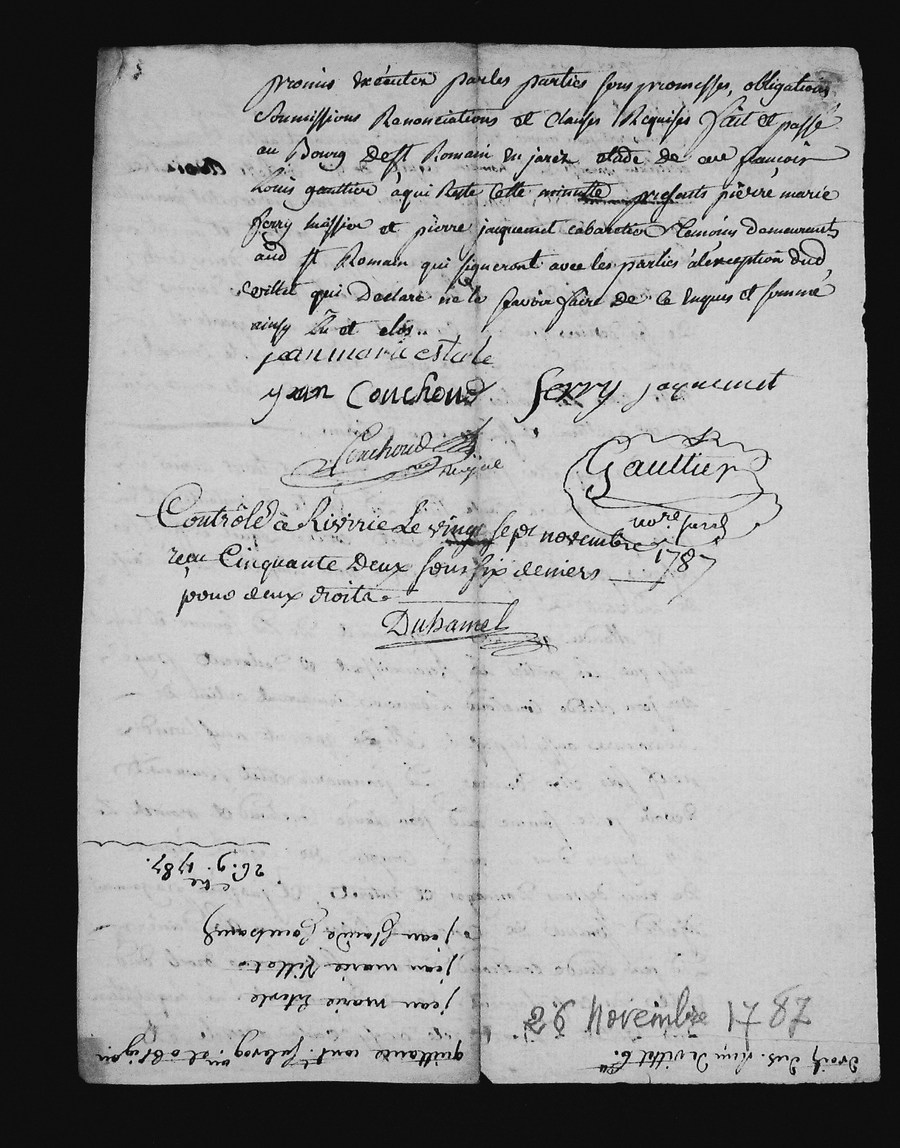 promis executer par les parties sous promesses, obligations
Soumissions Renonciations et clauses Requises fait et passé
au Bourg de St Romain en jarez etude de me francois
Louis gaultier a qui Reste Cette minutte presents pierre marie
ferry huissier et pierre jaquemet cabaretier temoins demeurants
aud St Romain qui signeront avec les parties a l'exception dud
villet qui Declare ne le savoir faire de ce enquis et sommé
ainsy Lu et clos.
jean marie esterle
jean Couchoud ferry jaquemet
Couchoud
Gaultier
nore
Controlé a Riverie Le vingt sept novembre 1787
reçu Cinquante Deux sous six deniers
pour deux droits.
Duhamel
26 Novembre 1787
quittance
jean marie esterle
jean marie Villet
jean Claude
26. 9bre 1787.